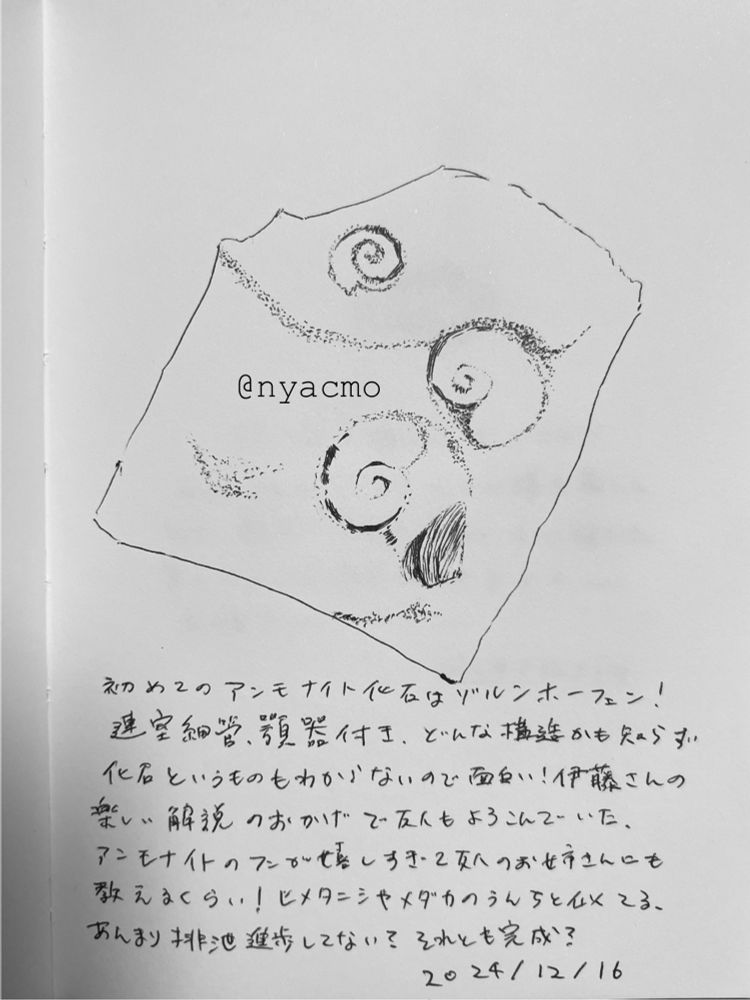 @nyacmo
初めてのアンモナイト化石はゾルンホーフェン！
連室細管、顎器付き、どんな構造かも知らず、
化石というものもわからないので面白い！伊藤さんの
楽しい解説のおかげで友人もよろこんでいた、
アンモナイトのフンが嬉しすぎて友人のお姉さんにも
教えるくらい！ヒメタニシやメダカのうんちと似てる、
あんまり排泄進歩してない？それとも完成？
2024/12/16